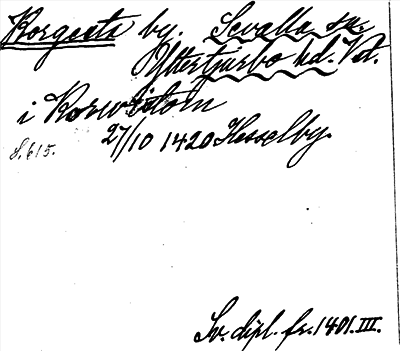 Korgesta by. Sevalla sn.
Yttertjurbo hd. Vstm.
i Korwistom
27/10 1420 Hesselby.
s. 615.
Sv. dipl. fr. 1401. III.